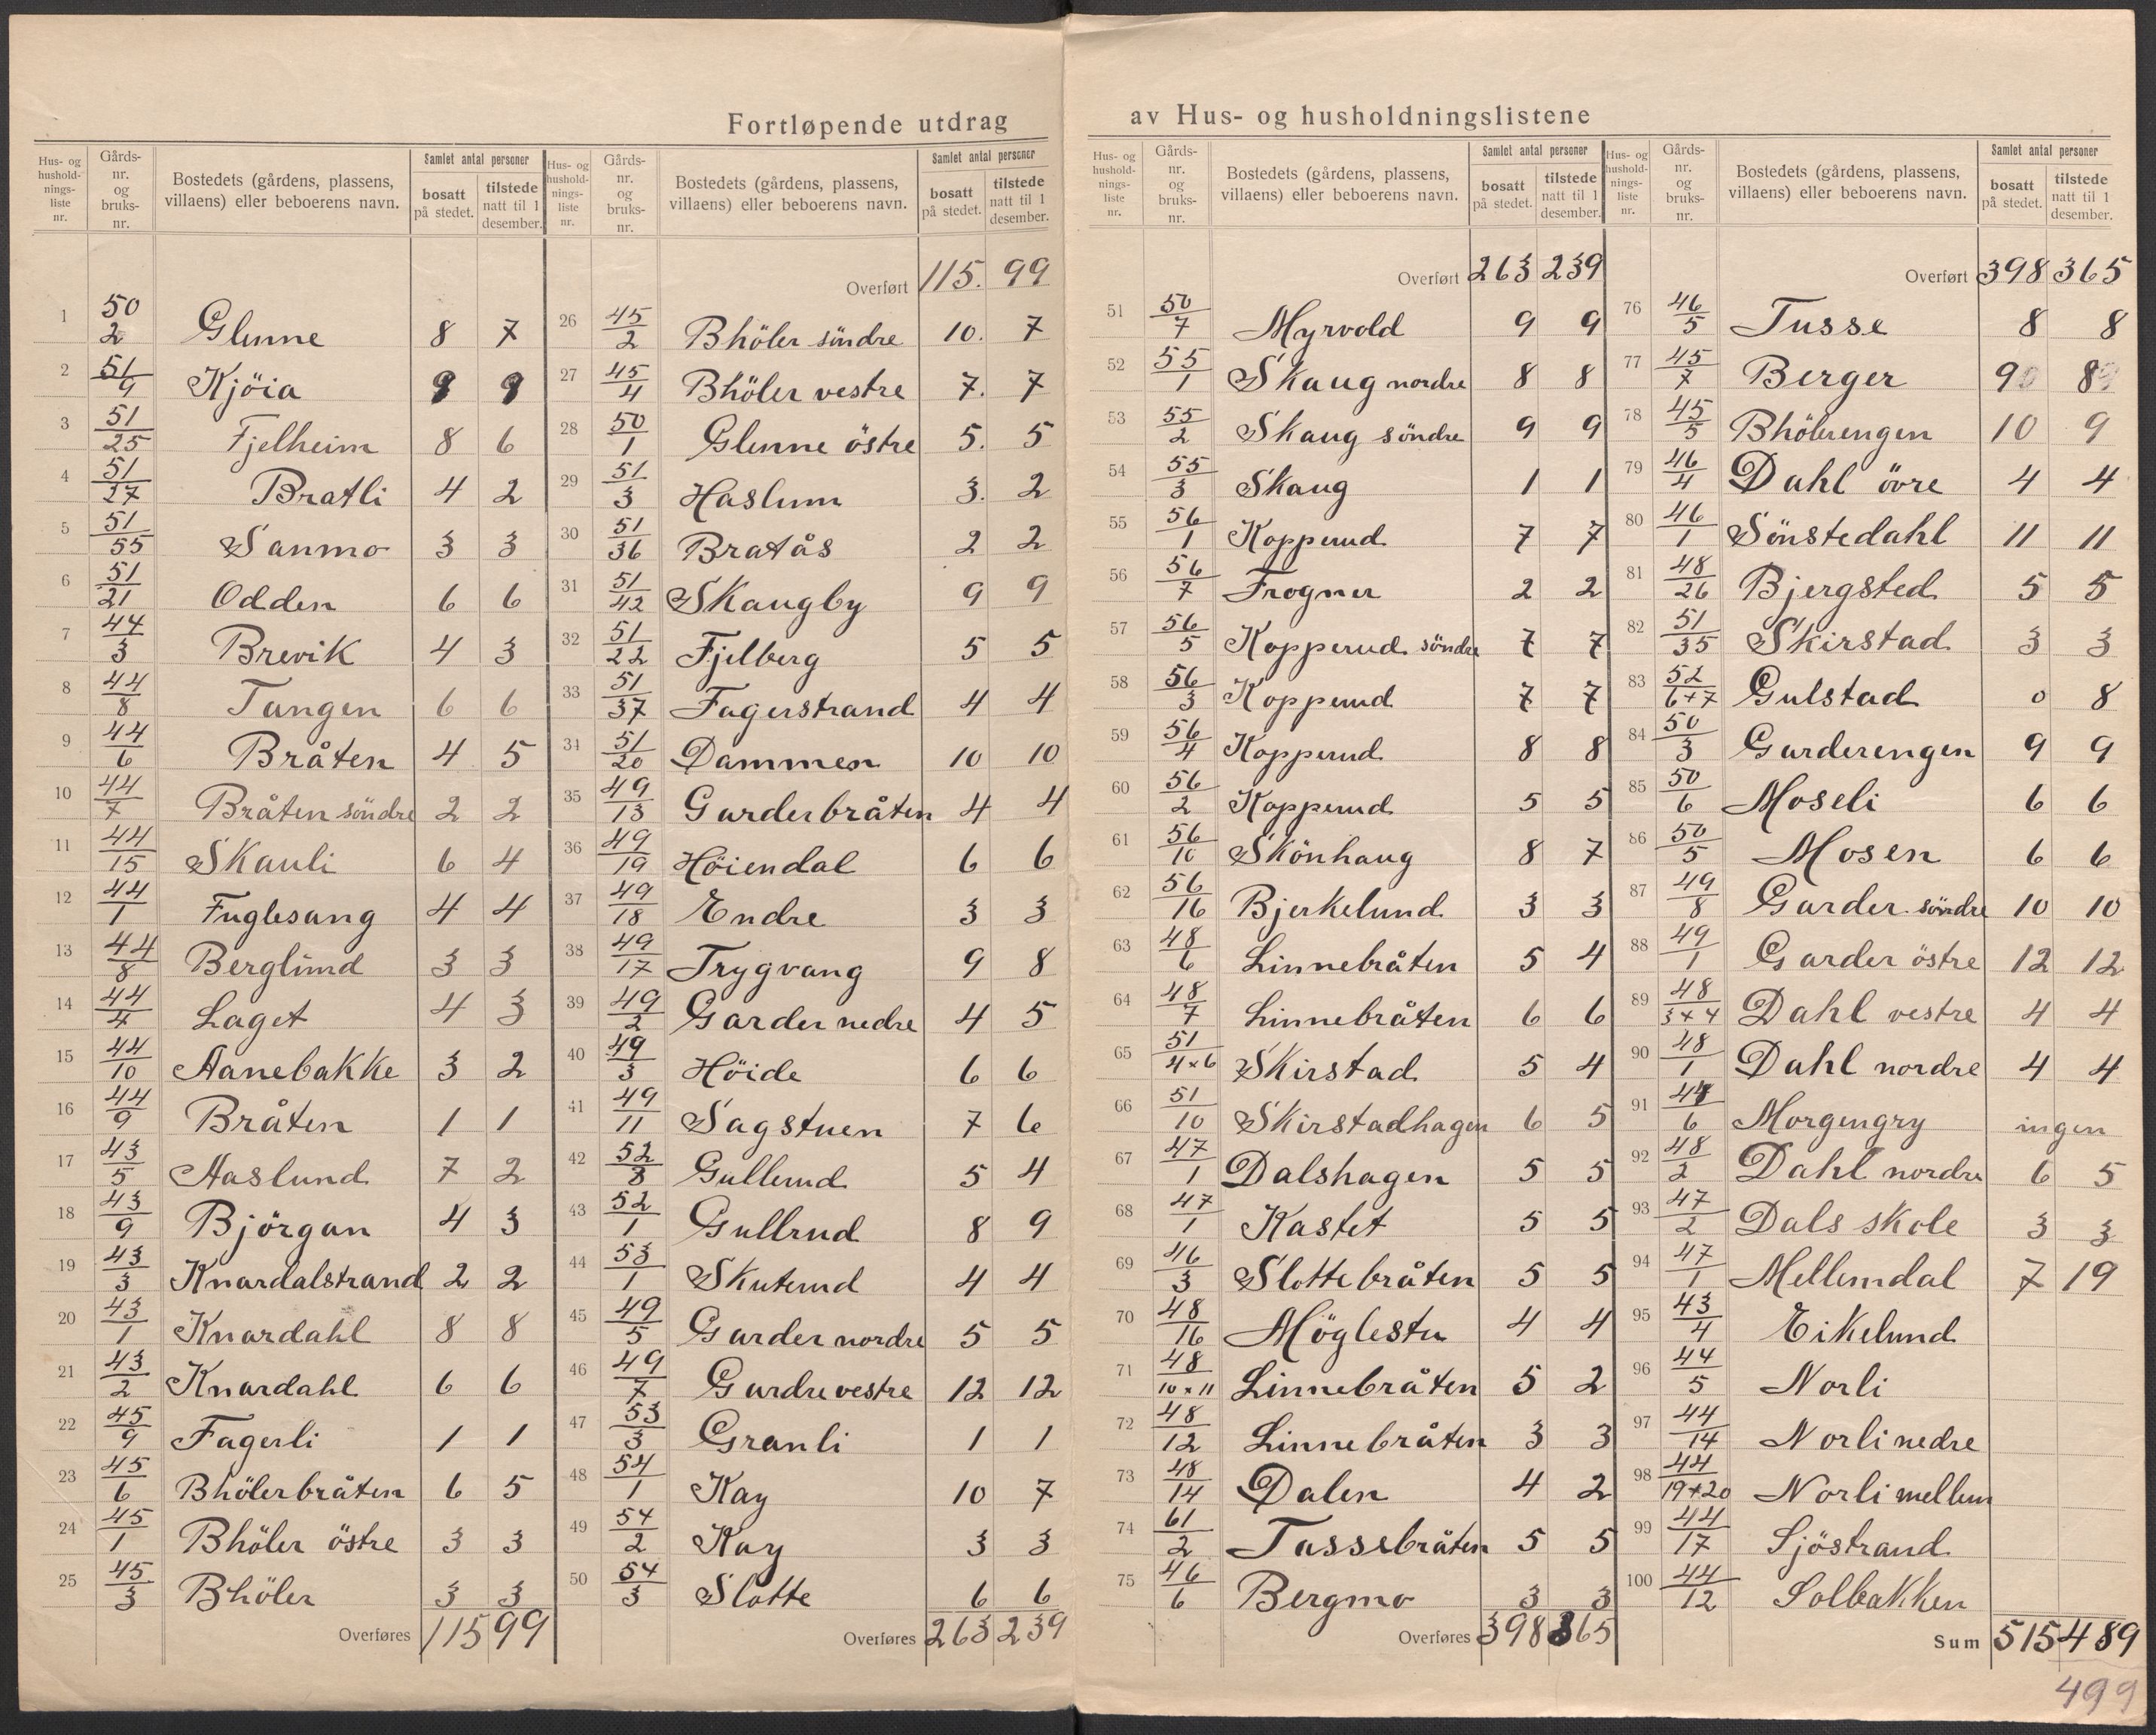 Fortløpende utdrag av Hus- og husholdningslistene
Hus- og hushold-nings-liste nr. | Gårds-nr. og bruks-nr. | Bostedets (gårdens, plassens, villaens) eller beboerens navn. | Samlet antal personer | bosatt på stedet. | tilstede natt til 1 desember.
1 50/2 Glenne 8 7
2 51/9 Kjöia 9 9
3 51/25 Fjelheim 8 6
4 51/27 Bratli 4 2
5 51/55 Sanmo 3 3
6 51/21 Odden 6 6
7 44/3 Brevik 4 3
8 44/8 Tangen 6 6
9 44/6 Bråten 4 5
10 44/7 Bråten söndre 2 2
11 44/15 Skauli 6 4
12 44/1 Fuglesang 4 4
13 44/8 Berglund 3 3
14 44/4 Laget 4 3
15 44/10 Aanebakke 3 2
16 44/9 Bråten 1 1
17 43/5 Aaslund 7 2
18 43/9 Björgan 4 3
19 43/3 Knardalstrand 2 2
20 43/1 Knardahl 8 8
21 43/2 Knardahl 6 6
22 45/9 Fagerli 1 1
23 45/6 Bhölerbråten 6 5
24 45/1 Bhöler östre 3 3
25 45/3 Bhöler 3 3
Overføres 115 99
Hus- og hushold-nings-liste nr. | Gårds-nr. og bruks-nr. | Bostedets (gårdens, plassens, villaens) eller beboerens navn. | Samlet antal personer | bosatt på stedet. | tilstede natt til 1 desember.
Overført 115. 99
26 45/2 Bhöler söndre 10. 7
27 45/4 Bhöler vestre 7. 7
28 50/1 Glenne östre 5. 5
29 51/3 Haslum 3. 2
30 51/36 Bratås 2 2
31 51/42 Skaugby 9 9
32 51/22 Fjelberg 5 5
33 51/37 Fagerstrand 4 4
34 51/20 Dammen 10 10
35 49/13 Garderbråten 4 4
36 49/19 Höiendal 6 6
37 49/18 Endre 3 3
38 49/17 Trygvang 9 8
39 49/2 Garder nedre 4 5
40 49/3 Höide 6 6
41 49/11 Sagstuen 7 6
42 52/8 Gullerud 5 4
43 52/1 Gullrud 8 9
44 53/1 Skuterud 4 4
45 49/5 Garder nordre 5 5
46 49/7 Gardre vestre 12 12
47 53/3 Granli 1 1
48 54/1 Kay 10 7
49 54/2 Kay 3 3
50 54/3 Slotte 6 6
Overføres 263 239
Hus- og hushold-nings-liste nr. | Gårds-nr. og bruks-nr. | Bostedets (gårdens, plassens, villaens) eller beboerens navn. | Samlet antal personer | bosatt på stedet. | tilstede natt til 1 desember.
Overført 263 239
51 50/7 Myrvold 9 9
52 55/1 Skaug nordre 8 8
53 55/2 Skaug söndre 9 9
54 55/3 Skaug 1 1
55 56/1 Kopperud 7 7
56 56/7 Frogner 2 2
57 56/5 Kopperud söndre 7 7
58 56/3 Kopperud 7 7
59 56/4 Kopperud 8 8
60 56/2 Kopperud 5 5
61 56/10 Skönhaug 8 7
62 56/16 Bjerkelund 3 3
63 48/6 Linnebråten 5 4
64 48/7 Linnebråten 6 6
65 51/4×6 Skirstad 5 4
66 51/10 Skirstadhagen 6 5
67 47/1 Dalshagen 5 5
68 47/1 Kastet 5 5
69 46/3 Slottebråten 5 5
70 48/16 Möglestu 4 4
71 48/10×11 Linnebråten 5 2
72 48/12 Linnebråten 3 3
73 48/14 Dalen 4 2
74 61/2 Tassebråten 5 5
75 46/6 Bergmo 3 3
Overføres 398 365
Hus- og hushold-nings-liste nr. | Gårds-nr. og bruks-nr. | Bostedets (gårdens, plassens, villaens) eller beboerens navn. | Samlet antal personer | bosatt på stedet. | tilstede natt til 1 desember.
Overført 398 365
76 46/5 Tusse 8 8
77 45/7 Berger 9 8
78 45/5 Bhölerengen 10 9
79 46/4 Dahl övre 4 4
80 46/1 Sönstedahl 11 11
81 48/26 Bjergsted 5 5
82 51/35 Skirstad 3 3
83 52/6+7 Gulstad 0 8
84 50/3 Garderengen 9 9
85 50/6 Moseli 6 6
86 50/5 Mosen 6 6
87 49/8 Garder söndre 10 10
88 49/1 Garder östre 12 12
89 48/3×4 Dahl vestre 4 4
90 48/1 Dahl nordre 4 4
91 48/6 Morgengry ingen
92 48/2 Dahl nordre 6 5
93 47/2 Dals skole 3 3
94 47/1 Mellemdal 7 19
95 43/4 Eikelund
96 44/5 Norli
97 44/14 Norli nedre
98 44/19+20 Norli mellem
99 44/17 Sjöstrand
100 44/12 Solbakken
Sum 515 489
499